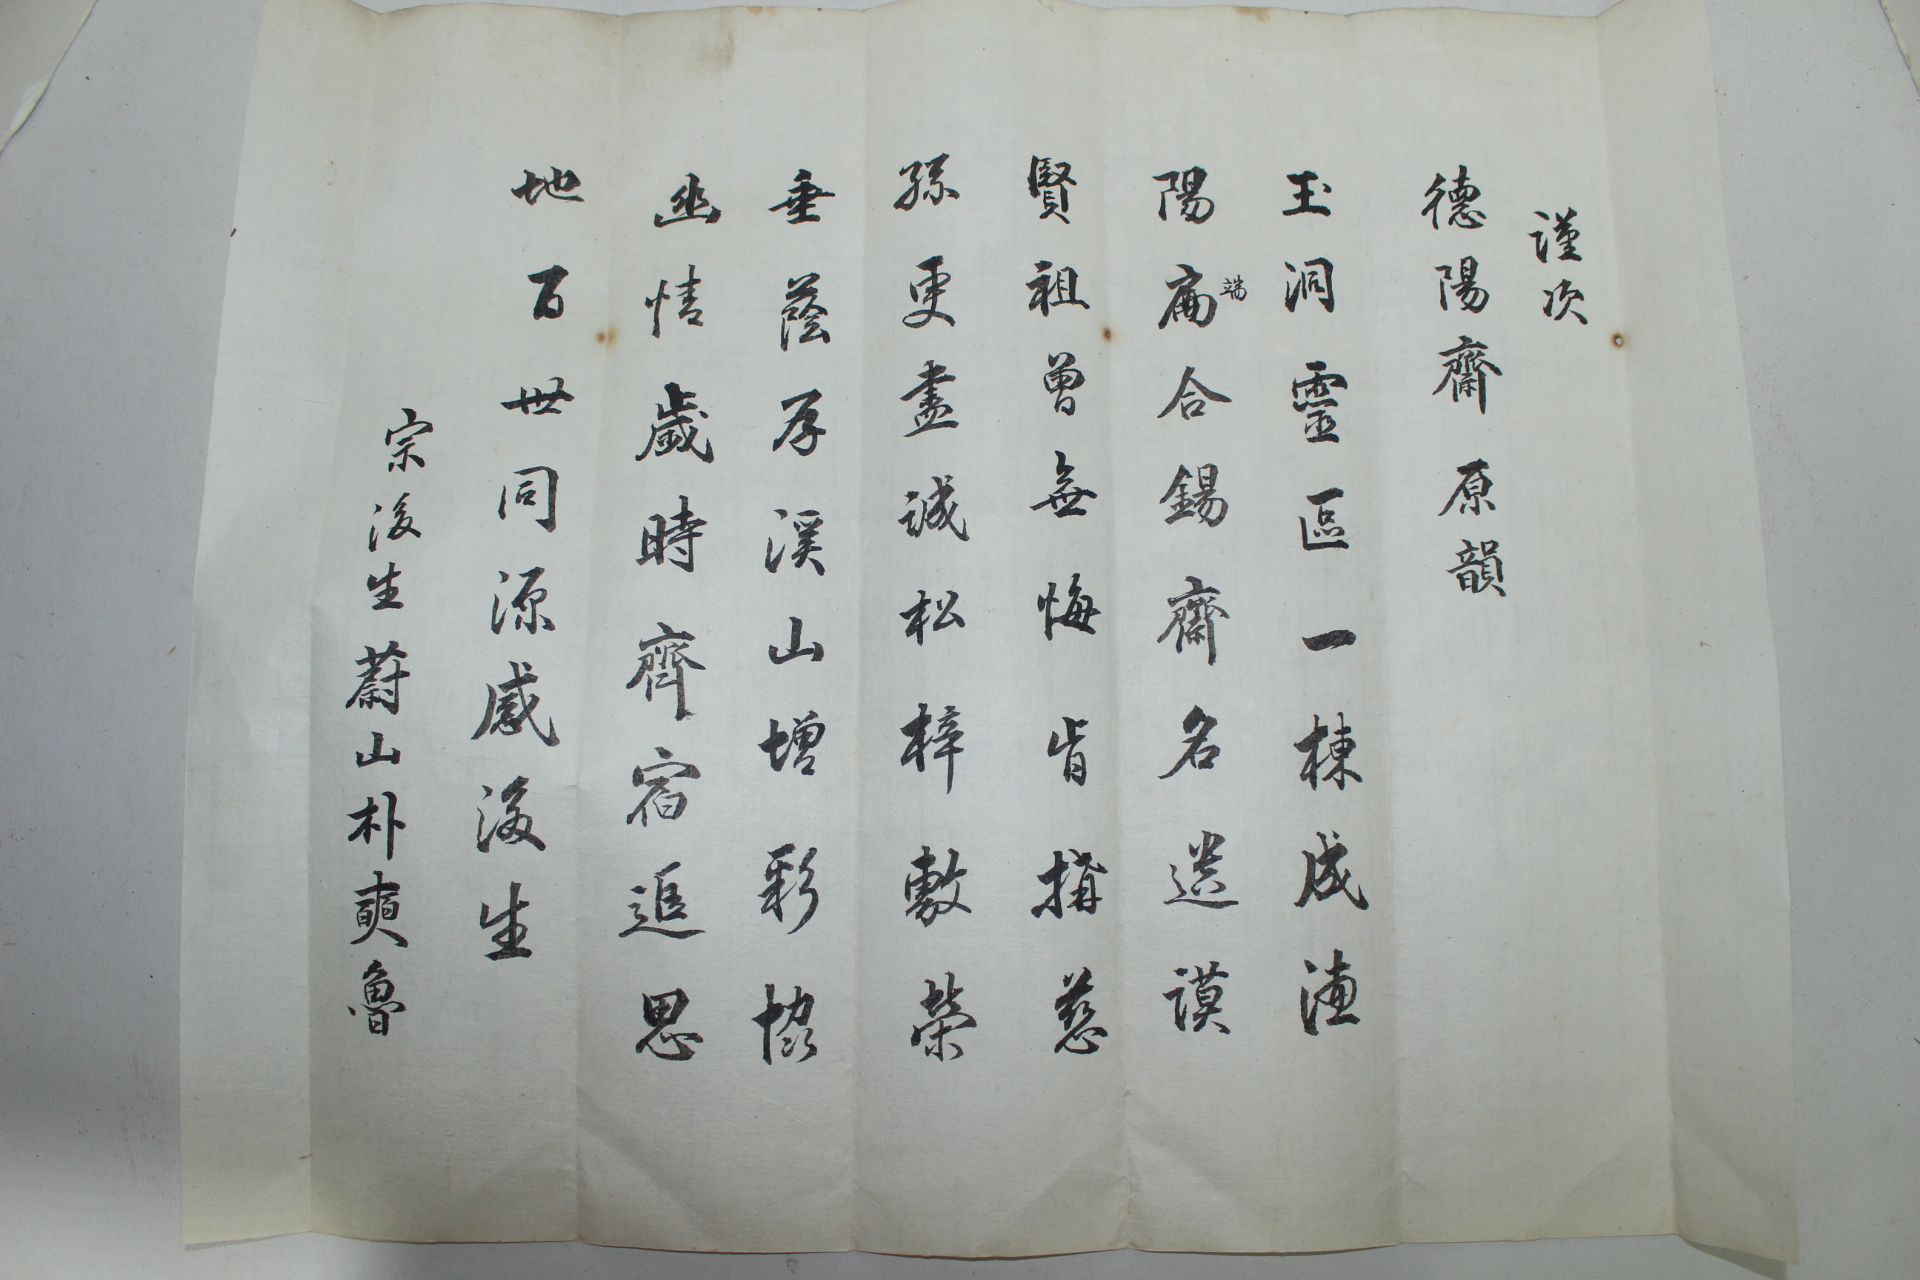 謹次
德陽齋原韻
玉洞靈區一棟成德
陽扁端合錫齋名遺謨
賢祖曾無悔肯搆慈
孫更盡誠松梓敷榮
垂蔭厚溪山增彩
幽情歲時齊宿追思
地百世同源感後生
宗後生蔚山朴奭魯